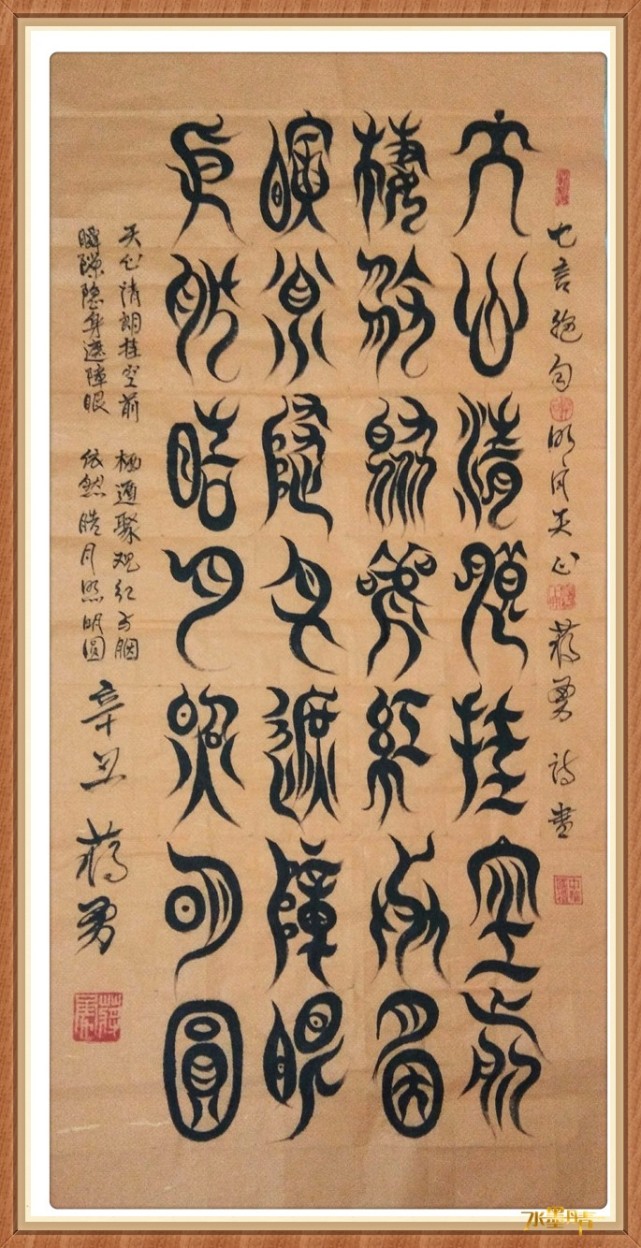 七言绝句 明月天心 蒋勇 诗书
天心清朗挂空前
聚观红胭
瞬隙隐身遮障眼
依然皓月照明圆
天心清朗挂空前 聚观红胭
瞬隙隐身遮障眼 依然皓月照明圆
辛丑 蒋勇
水墨晴